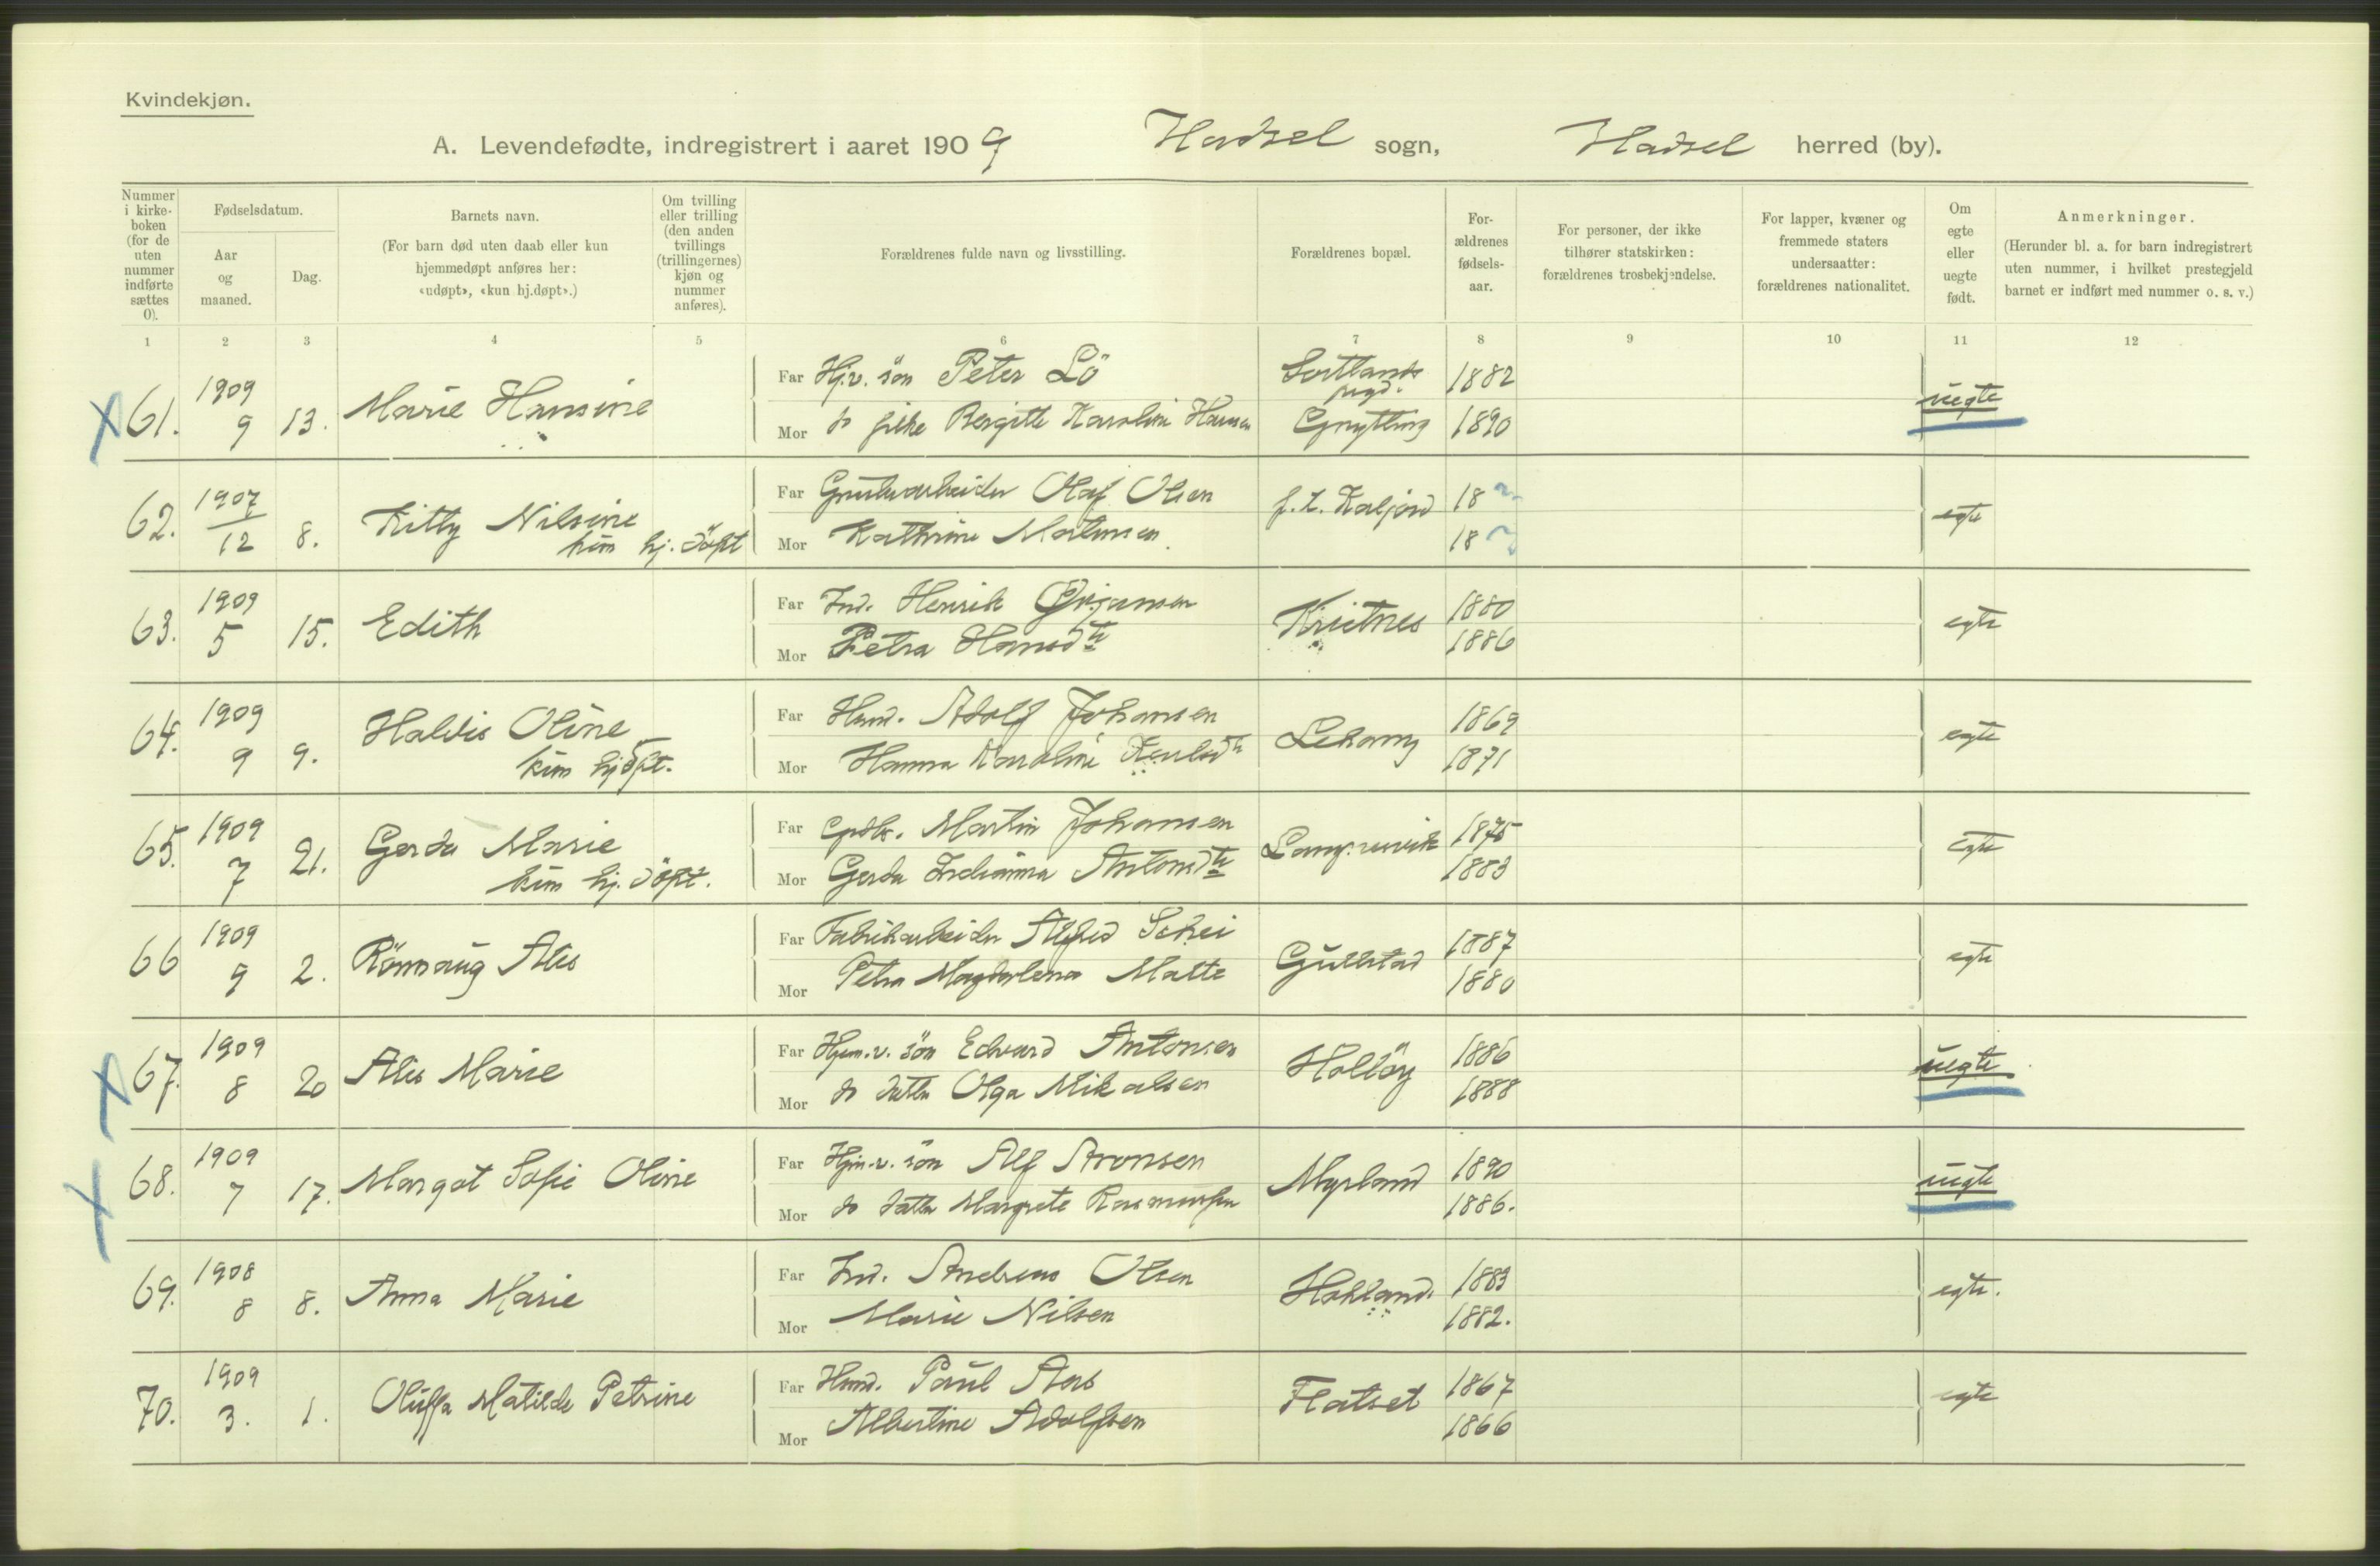 Kvindekjøn.
A. Levendefødte, indregistrert i aaret 1909 Hadsel sogn, Hadsel herred (by).
Nummer i kirke-boken (for de uten nummer indførte sættes 0).
Fødselsdatum.
Aar og maaned.
Dag.
Barnets navn.
(For barn død uten daab eller kun hjemmedøpt anføres her: «udøpt», «kun hj.døpt».)
Om tvilling eller trilling (den anden tvillings (trillingernes) kjøn og nummer anføres).
Forældrenes fulde navn og livsstilling.
Forældrenes bopæl.
For-ældrenes fødsels-aar.
For personer, der ikke tilhører statskirken: forældrenes trosbekjendelse.
For lapper, kvæner og fremmede staters undersaatter: forældrenes nationalitet.
Om egte eller uegte født.
Anmerkninger.
(Herunder bl. a. for barn indregistrert uten nummer, i hvilket prestegjeld barnet er indført med nummer o. s. v.)
1 2 3 4 5 6 7 8 9 10 11 12
61. 1909 9 13. Marie Hansine
Far Hj.v. sön Peter Lö Sortlands pgd. 1882 uegte
Mor do pike Bergitte Karoline Hansen Grytting 1890
62. 1907 12 8. Kitty Nilsine kun hj. döpt
Far Grubearbeider Olaf Olsen f. t. Kaljord 18 egte
Mor Kathrine Martinsen 18
63. 1909 5 15. Edith
Far Ind. Henrik Ørjansen 1880 egte
Mor Petra Hansdtr 1886
64. 1909 9 9. Haldis Oline kun hj döpt.
Far Husm. Adolf Johansen Lekang 1869 egte
Mor Hanna Karoline 1871
65. 1909 7 21. Gerda Marie kun hj. döpt.
Far Gpdbr. Martin Johansen 1875 egte
Mor Gerda Indianna Antonsdtr 1883
66 1909 9 2. Rönnaug Alis
Far Fabrikarbeider Alfred Schei Gulstad 1887 egte
Mor Petra Magdalena Matte 1880
67. 1909 8 20 Alis Marie
Far Hjem.v. sön Edvard Antonsen Hollöy 1886 uegte
Mor do datter Olga Mikalsen 1888
68. 1909 7 17. Margot Sofie Oline
Far Hjm.v. sön Alf Aronsen Myrland 1890 uegte
Mor do datter Margrete Rasmussen 1886.
69. 1908 8 8. Anna Marie
Far Ind. Andreas Olsen Hokland. 1883 egte.
Mor Marie Nilsen 1882.
70. 1909 3. 1. Oluffa Matilde Petrine
Far Husm. Paul Aas Flatset 1867 egte
Mor Albertine Adolfsen 1866